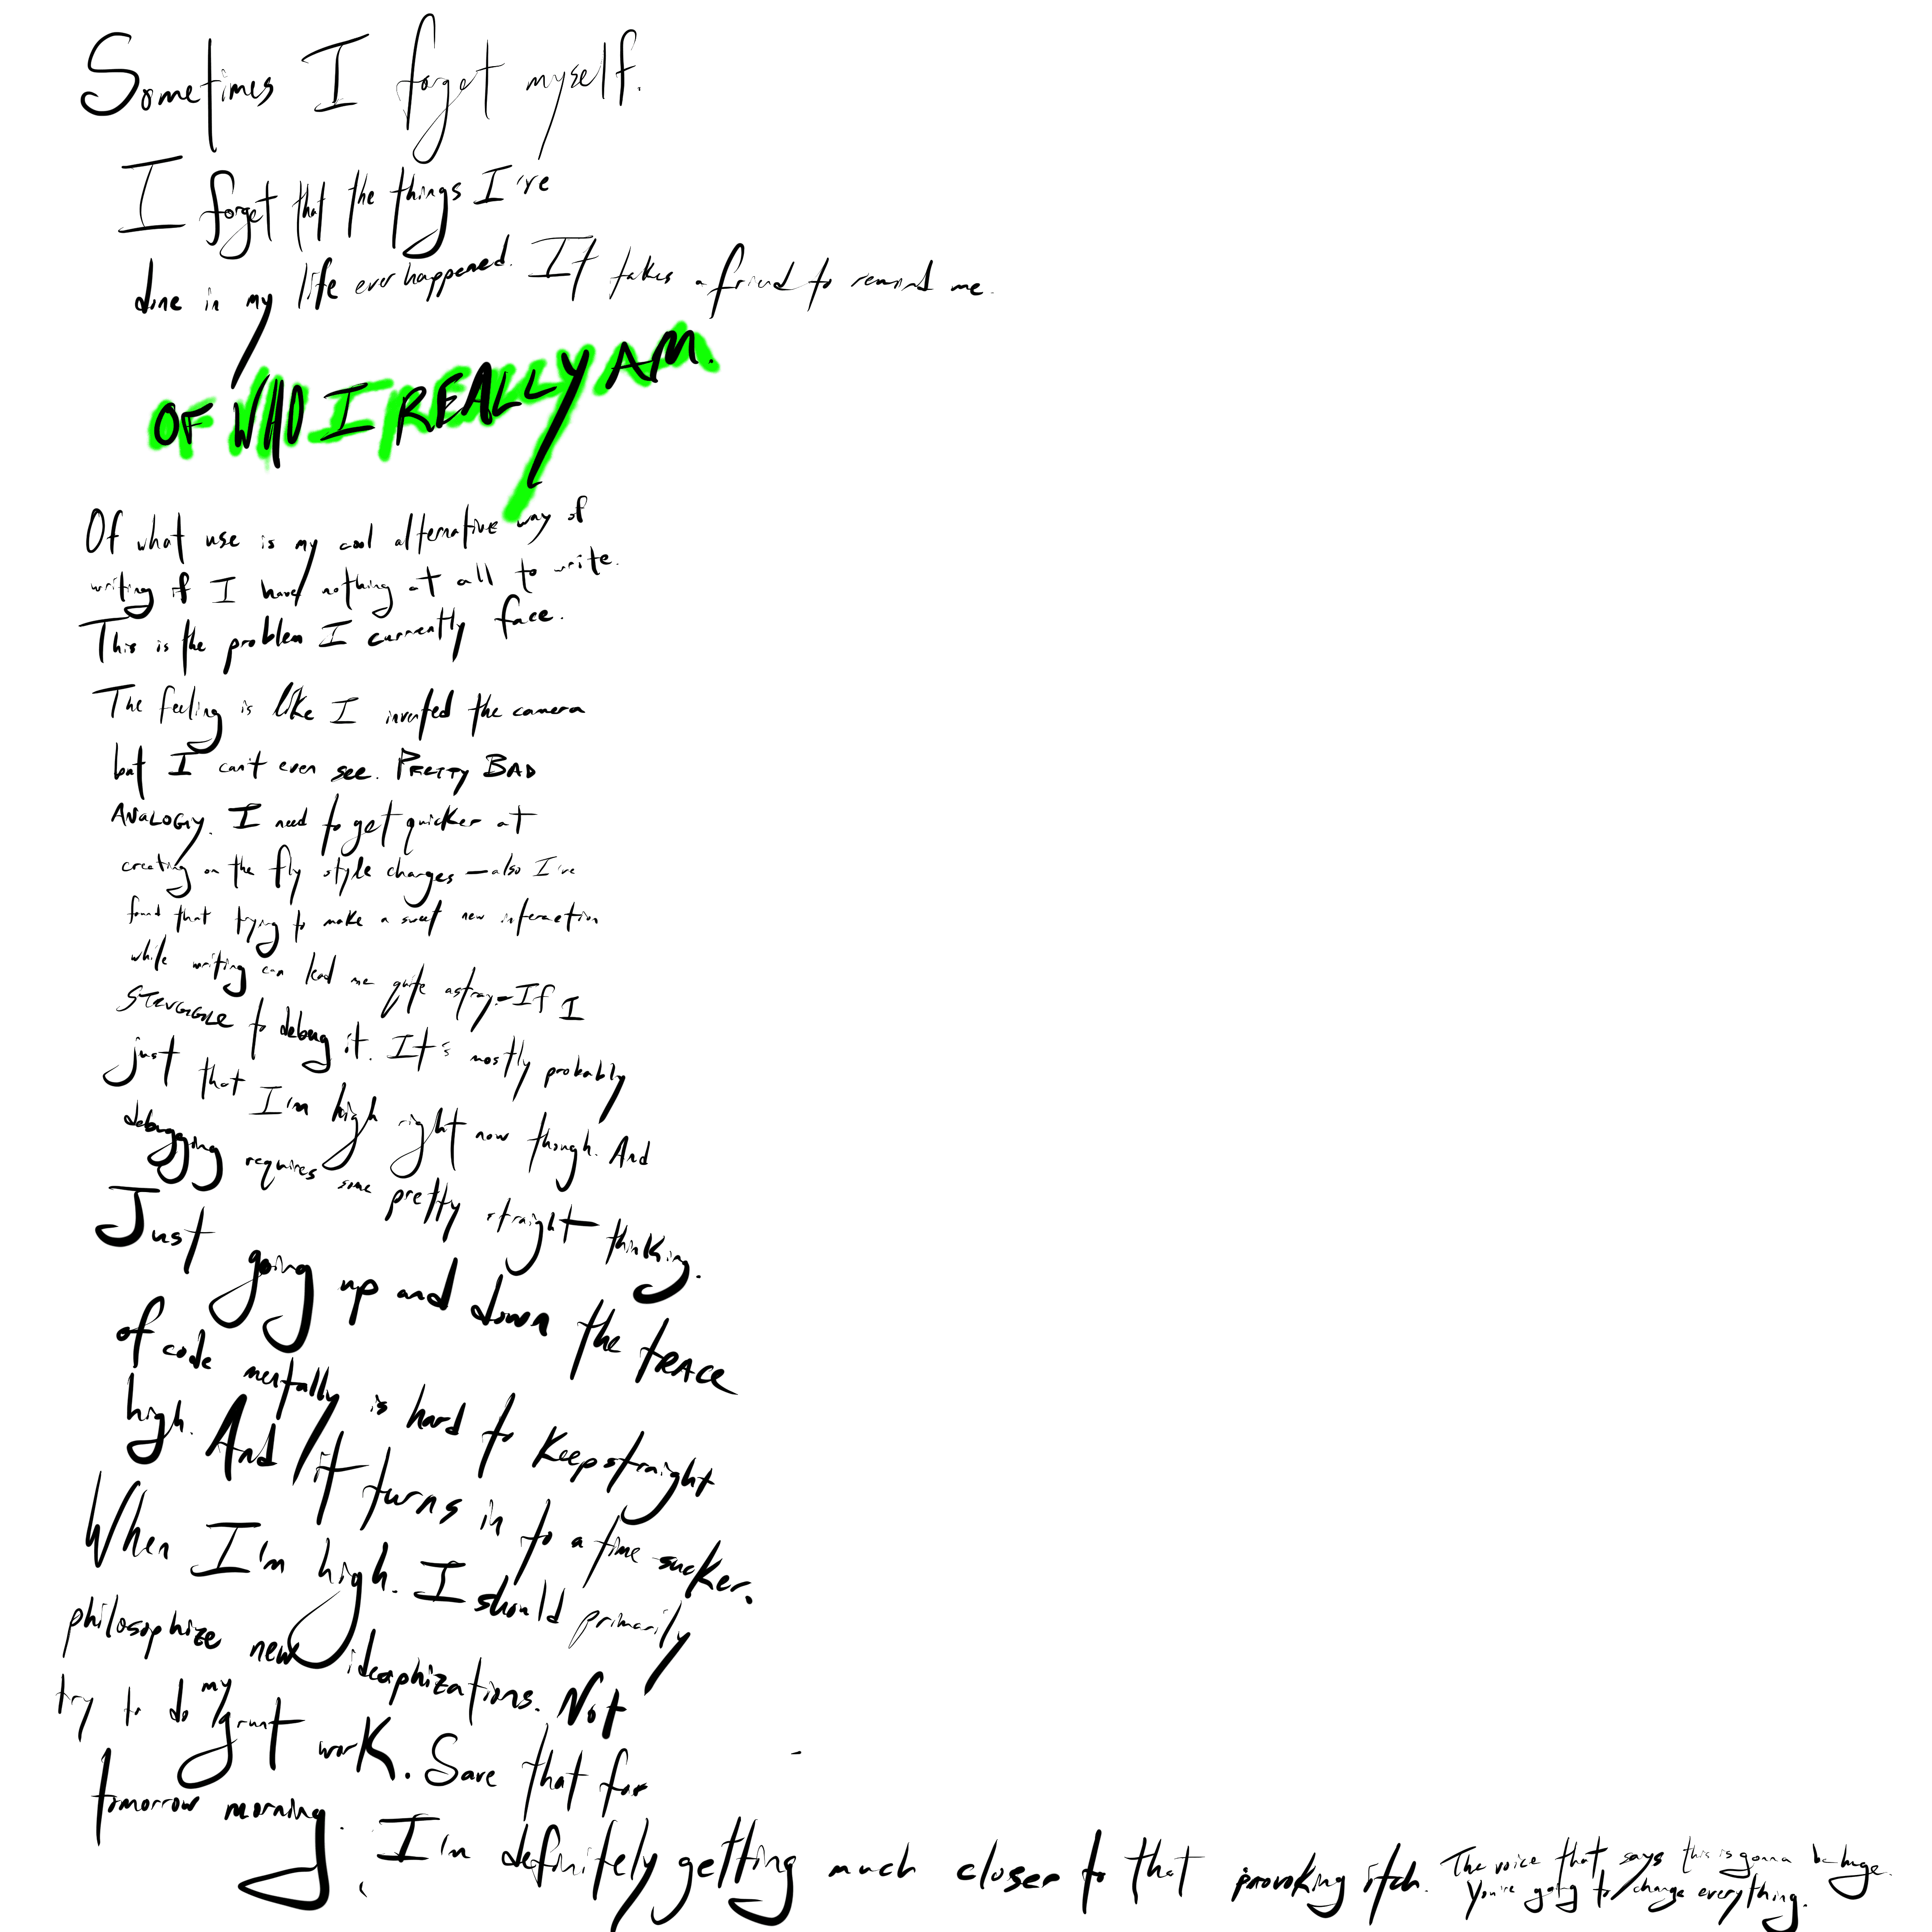 Sometimes I forget myself.
I forget that the things I've
done in my life ever happened. It takes a friend to remind me.
OF WHO I REALLY AM.
Of what use is my cool alternative way of
writing if I have nothing at all to write.
This is the problem I currently face.
The feeling is like I invented the camera
but I can't even see. PRETTY BAD
ANALOGY. I need to get quicker at
creating on the fly style changes — also I've
found that trying to make a sweet new interaction
while writing can lead me quite astray. - If I
STRUGGLE to debug it. It's mostly probably
just that I'm high right now though. And
debugging requires some pretty straight thinking.
Just going up and down the TRACE
of code mentally is hard to keep straight
high. And it turns in to a time sucker.
When I'm high. I should primarily
philosophize new ideaphizations. Not
try to do my grunt work. Save that for
tomorrow morning. I'm definitely getting much closer to that provoking itch. The voice that says this is gonna be huge.
You're going to change everything.